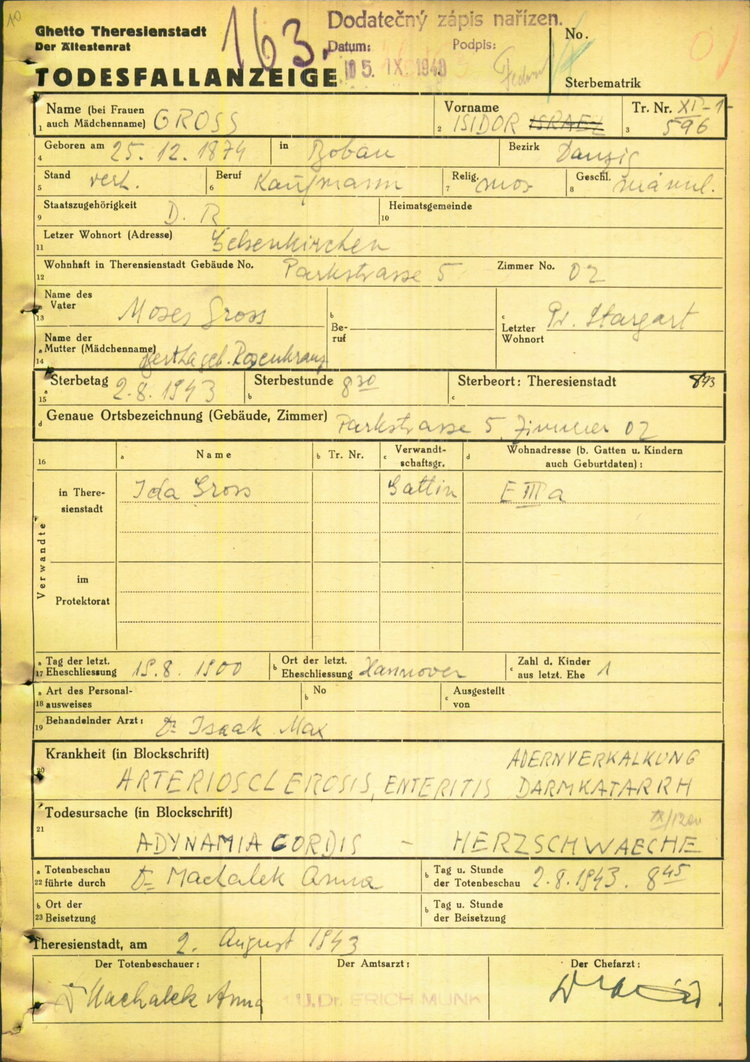 10
Ghetto Theresienstadt
Der Ältestenrat
TODESFALLANZEIGE
163.
Dodatečný zápis nařízen.
Datum: 05. IX. 1949 Podpis:
No.
Sterbematrik
Name (bei Frauen auch Mädchenname) GROSS
1
Vorname ISIDOR ISRAEL
2
Tr. Nr. XI-1-596
3
Geboren am 25. 12. 1874 in Bobau Bezirk Danzig
4
Stand verh. Beruf Kaufmann Relig. mos Geschl. männl.
5 6 7 8
Staatszugehörigkeit D. R Heimatsgemeinde
9 10
Letzer Wohnort (Adresse) Gelsenkirchen
11
Wohnhaft in Theresienstadt Gebäude No. Parkstrasse 5 Zimmer No. 02
12
Name des Vater Moses Gross
a 13
b Beruf
c Letzter Wohnort Pr. Stargart
Name der Mutter (Mädchenname) Bertha geb. Rosenkranz
a 14
Sterbetag 2.8.1943 Sterbestunde 8 30 Sterbeort: Theresienstadt 843
a 15 b c
d Genaue Ortsbezeichnung (Gebäude, Zimmer) Parkstrasse 5, Zimmer 02
16 a Name b Tr. Nr. c Verwandtschaftsgr. d Wohnadresse (b. Gatten u. Kindern auch Geburtdaten):
Verwandte
in Theresienstadt Ida Gross Gattin E III a
im Protektorat
a 17 Tag der letzt. Eheschliessung 19.8.1900 b Ort der letzt. Eheschliessung Hannover c Zahl d. Kinder aus letzt. Ehe 1
a 18 Art des Personalausweises b No c Ausgestellt von
19 Behandelnder Arzt: Dr Isaak Max
Krankheit (in Blockschrift) ADERNVERKALKUNG
20 ARTERIOSCLEROSIS, ENTERITIS DARMKATARRH
Todesursache (in Blockschrift)
21 ADYNAMIA CORDIS - HERZSCHWAECHE
a 22 Totenbeschau führte durch Dr Machalek Anna b Tag u. Stunde der Totenbeschau 2.8.1943. 8 45
b 23 Ort der Beisetzung b Tag u. Stunde der Beisetzung
Theresienstadt, am 2. August 1943
Der Totenbeschauer: Der Amtsarzt: Der Chefarzt:
Dr Machalek Anna
U. Dr. ERICH MUNK